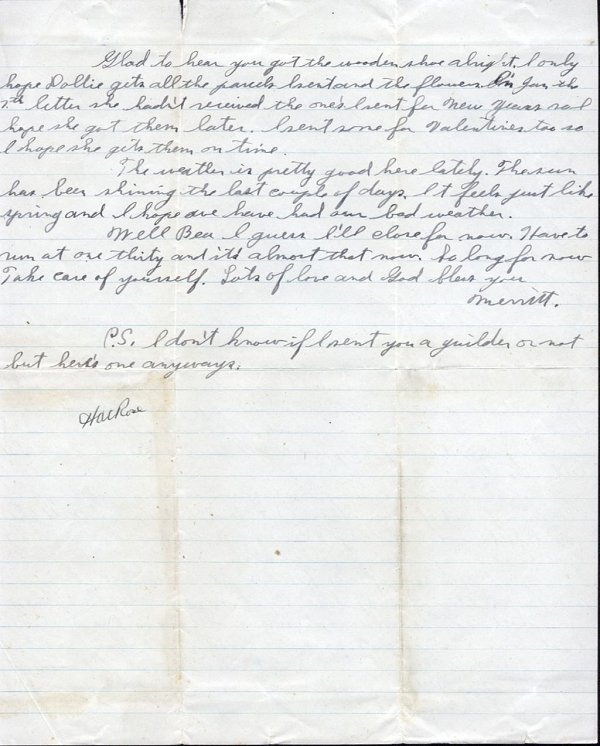 Glad to hear you got the wooden shoe alright. I only
hope Dollie gets all the parcels I sent and the flowers. In Jan the
7th letter she hadn't received the one's I sent for New Years so I
hope she got them later. I sent some for Valentines too so
I hope she gets them on time.
The weather is pretty good here lately. The sun
has been shining the last couple of days. It feels just like
spring and I hope we have had our bad weather.
Well Bea I guess I'll close for now. Have to
run at one thirty and it's almost that now. So long for now
Take care of yourself. Lots of love and God bless you
Merritt.
P.S. I don't know if I sent you a guilder or not
but here's one anyways.
Rose